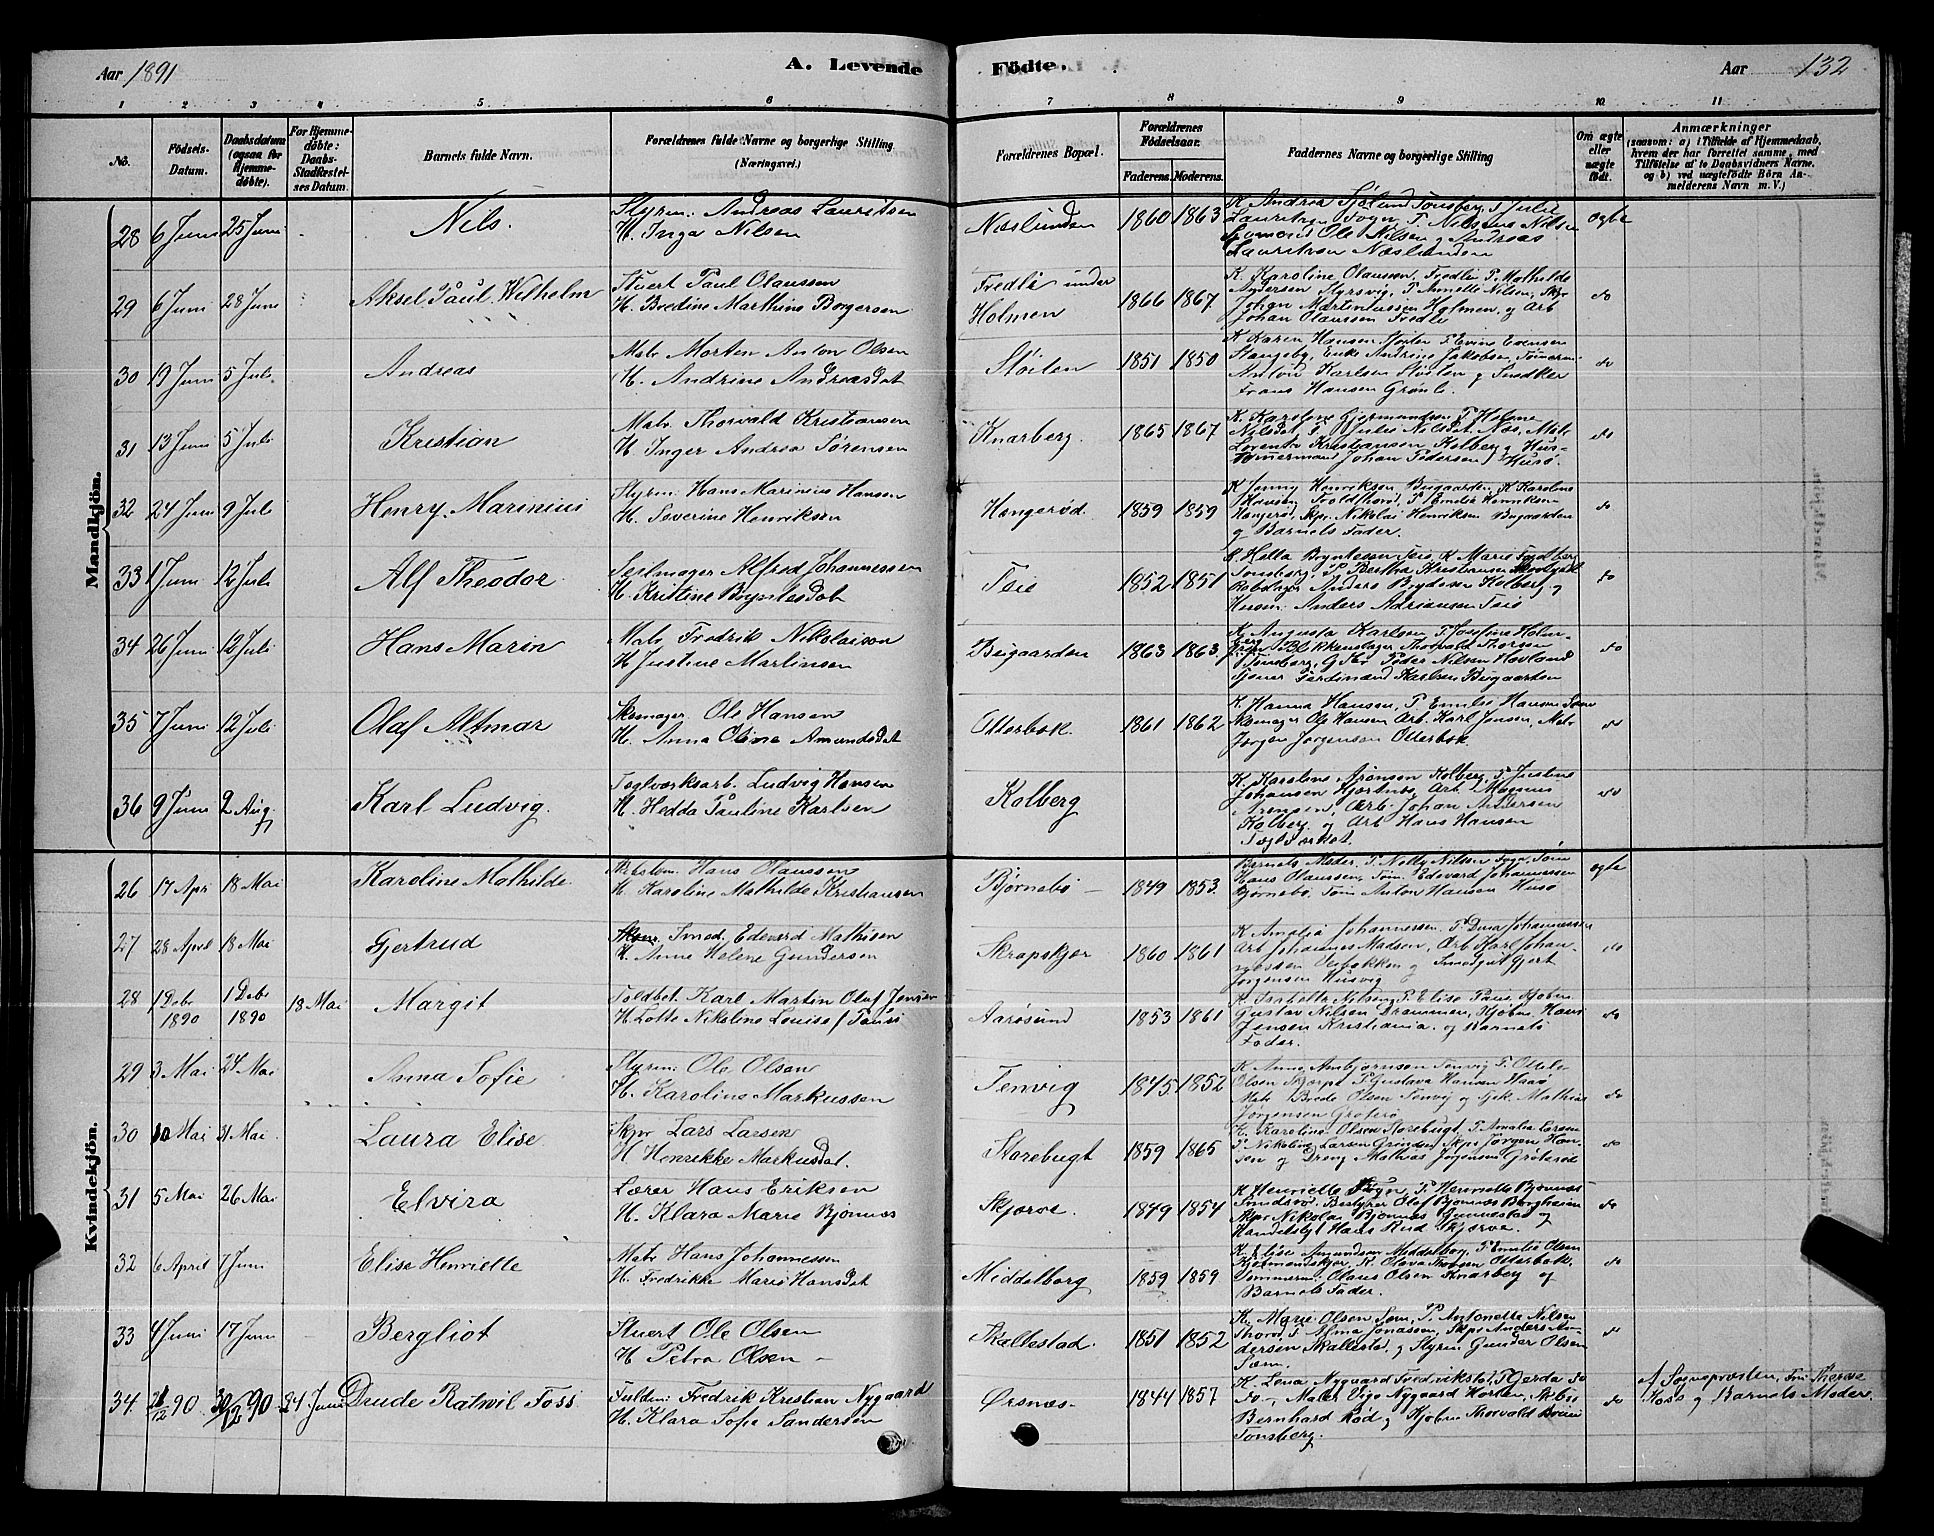 Aar 1891
A. Levende
Födte.
Aar
132
1 2 3 4 5 6 7 8 9 10 11
No.
Födsels-
Datum.
Daabsdatum
(ogsaa for
Hjemme-
døbte).
For Hjemme-
døbte:
Daabs-
Stadfæstel-
ses Datum.
Barnets fulde Navn.
Forældrenes fulde Navne og borgerlige Stilling
(Næringsvei.)
Forældrenes Bopæl.
Forældrenes
Fødselsaar.
Faderens. Moderens.
Faddernes Navne og borgerlige Stilling
Om ægte
eller
uægte
født.
Anmærkninger
(saasom: a) i Tilfælde af Hjemmedaab,
hvem der har forrettet samme, med
Tilføielse af to Daabsvidners Navne,
og b) ved uægtefödte Börn An-
melderens Navn m. V.)
Mandkjön.
28 6 Juni 25 Juni Nils. Styrm. Andreas Lauritsen
H. Inga Nilsen
Næslunden 1860 1863
Lauritsen Næslunden
ægte
29 6 Juni 28 Juni Aksel Paul Wilhelm Stuert Paul Olaussen
H. Bredine Marthine Borgersen
Fredli under
Holmen 1866 1867 K. Karoline Olaussen, Fredli P. Mathilde
Andersen Styrsvig, P. Annette Nilsen, Skpr
Johan Martiniussen Holmen, og Arb
Johan Olaussen Fredli
do
30 19 Juni 5 Juli Andreas Matr Morten Anton Olsen
H. Andrine Andreasdat
Støiten 1851 1850 K Karen Hansen
Anton Karlsen Støiten og Snedker
Frans Hansen Grønli.
do
31 13 Juni 5 Juli Kristian Matr. Thorvald Kristiansen
H. Inger Andrea Sørensen
Knarberg. 1865 1867
Kristiansen, Kolberg og Hus-
Tømmermand Johan Pedersen Husø.
do
32 24 Juni 9 Juli Henry Marinius Styrm. Hans Marinius Hansen
H. Severine Henriksen
Hangerød. 1859 1859 K Jenny Henriksen Bugaarden, K Karoline
Hansen P. Emilie Henriksen
Hangerød, Skpr. Nikolai Henriksen Bugaarden
og Barnets Fader.
do
33 1 Juni 12 Juli Alf Theodor Seilmager Alfred Johannessen
H. Kristine Bryntesdat
Teie 1852 1851
Tønsberg, P. Bertha Kristiansen
Rebslager Anders Kolberg og
Husm. Anders Adriansen Teie
do
34 26 Juni 12 Juli Hans Marin Matr Fredrik Nikolaisen
H Justine Martinsen
Bugaarden 1863 1863 K. Augusta Karlsen, P. Josefine Holm-
Blikkenslager Thorvald Thorsen
Tønsberg, Peder Nilsen Hovland
Tjener Ferdinand Karlsen Bugaarden
do
35 7 Juni 12 Juli Olaf Altmar Skomager. Ole Hansen
H. Anna Oline Amundsdat
Otterbæk. 1861 1862 K. Hanna Hansen, P Emilie Hansen
Skomager Ole Hansen Arb. Karl Jensen, Matr
Jørgen Jørgensen Otterbæk.
do
36 9 Juni 2 Aug. Karl Ludvig. Teglværksarb. Ludvig Hansen
H. Hedda Pauline Karlsen
Kolberg K. Karoline Aronsen Kolberg, P. Justine
Johansen Hjertnes, Arb. Magnus
Aronsen, Arb. Johan Andersen
Kolberg og Arb Hans Hansen
Teglværket.
do
Kvindekjön.
26 17 Apr 18 Mai Karoline Mathilde. Hans Olaussen
H Karoline Mathilde Kristiansen
Bjørnebo 1849 1853 Barnets Moder, P. Nelly Nilsen
Hans Olaussen, Tøm. Edvard Johannessen
Bjørnebo, Tøm Anton Hansen Husø
ægte
27 28 April 18 Mai Gjertrud Smed. Edvard Mathisen
H. Anne Helene Gundersen
Skrapskjær 1860 1861 K Amalie Johannessen, P. Dina Johannessen
Arb Johannes Madsen, Arb Karl Johan-
nessen og Smedgut Gjert
Jørgensen Husvig
do
28 1 Debr
1890 1 Debr
1890 18 Mai Margit Toldbet. Karl Martin Olaf Jensen
H. Lotte Nikoline Louise f Pauss
Aarøsund 1853 1861 K. Isabella Nilsen, P. Elise Paus, Kjøbm.
Gustav Nilsen Drammen, Kjøbm. Hans
Jensen Kristiania. og Barnets
Fader.
do
29 3 Mai 24 Mai Anna Sofie Styrm. Ole Olsen
H. Karoline Markussen
Tenvig 1845 1852 K Anne Anbjørnsen Tenvig P. Otilie
Olsen P. Gustava Hansen
Matr Brede Olsen Tenvig og Mathias
Jørgensen Grøterø
do
30 10 Mai 31 Mai Laura Elise. Skpr Lars Larsen
H Henrikke Markusdat.
Storebugt 1859 1865 K. Karoline Olsen Storebugt, P. Amalia Larsen
P. Nikoline Larsen Grinden, Skpr Jørgen Han-
sen og Dreng Mathias Jørgensen Grøterød
do
31 5 Mai 26 Mai Elvira Lærer Hans Eriksen
H. Klara Marie Bjønnes
Skjærve. 1849 1854 K Henriette Fogn, P. Henriette Bjønnes
Bestyrer Olaf Bjønnes Bergheim
Skpr Nikolai Bjønnes og
Handelsbet Hans Rud Skjerve.
do
32 6 April 7 Juni Elise Henriette Matr Hans Johannessen
H. Fredrikke Marie Hansdat
Middelborg 1859 1859. K. Elise Amundsen Middelborg, P. Emilie Olsen
Tømmerm. Olaus Olsen Knarberg og
Barnets Fader.
do
33 4 Juni 17 Juni Bergliot Stuert Ole Olsen
H Petra Olsen
Skallestad. 1851 1852 K. Marie Olsen Sem, P. Antonette Nilsen
P. Alma Jonassen, Skpr Anders An-
dersen Skallestd, og Styrm Gunder Olsen
Sæm.
do
34 21/12 90 30/12 90 24 Juni Drude Ratwil Foss Fuldm. Fredrik Kristian Nygaard
H. Klara Sofie Sandersen
Ørsnæs 1844 1857 K. Lena Nygaard Fredrikstad, P Gerda do
do, Maler Vigo Nygaard Horten, Skibsr
Bernhard Rød og Kjøbm Thorvald
Tønsberg.
do Af Sogneprosten, Fru Therese
Foss og Barnets Moder.